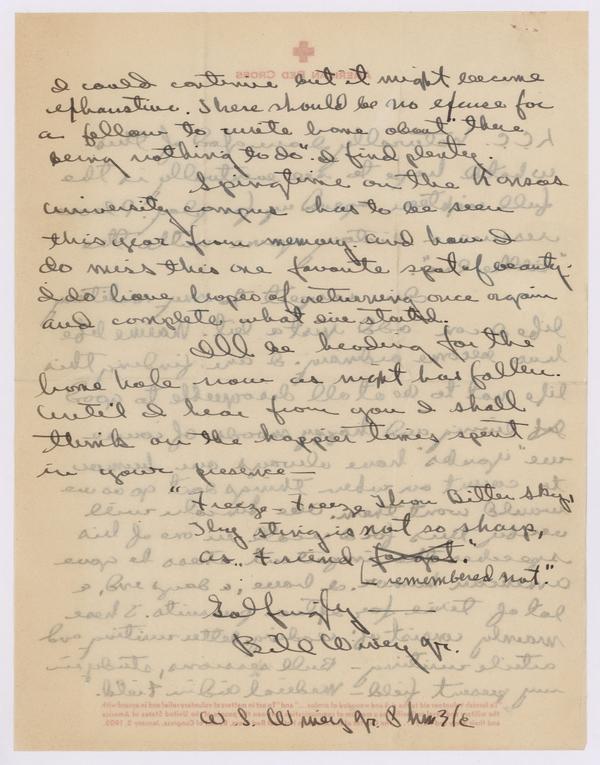 I could continue but it might become
exhaustive. There should be no excuse for
a fellow to write home about "there
being nothing to do". I find plenty.
Springtime on the Kansas
University campus has to be seen
this year from memory. and how I
do miss this one favorite spot of beauty.
I do have hopes of returning once again
and complete what I've started.
I'll be heading for the
home hole now as night has fallen.
Until I hear from you I shall
think on the happier times spent
in your presence —
"Freeze - Freeze Thou Bitter sky,
Thy sting is not so sharp,
as.. friend forgot."
remembered not."
Bill Winey Jr.
W. S. Winey Jr. P hm 3/c